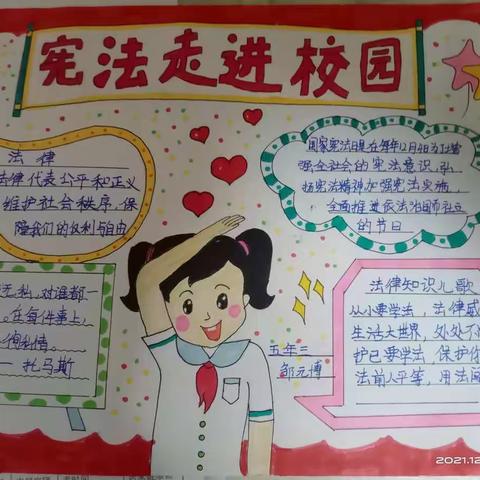 宪法走进校园
法 律
法律代表公平和正义
维护社会秩序、保
障我们的权利与自由
国家宪法日是在每年12月4日为了增
强全社会的宪法意识,弘
扬宪法精神加强宪法实施,
全面推进依法治国而设立
的节日
无私,对谁都一
在每件事上,
徇私情。
托马斯
五年三
邹元博
法律知识儿歌
从小要学法,法律威
生活大世界,处处不
护己要学法,保护你
法前人平等,用法
2021.12